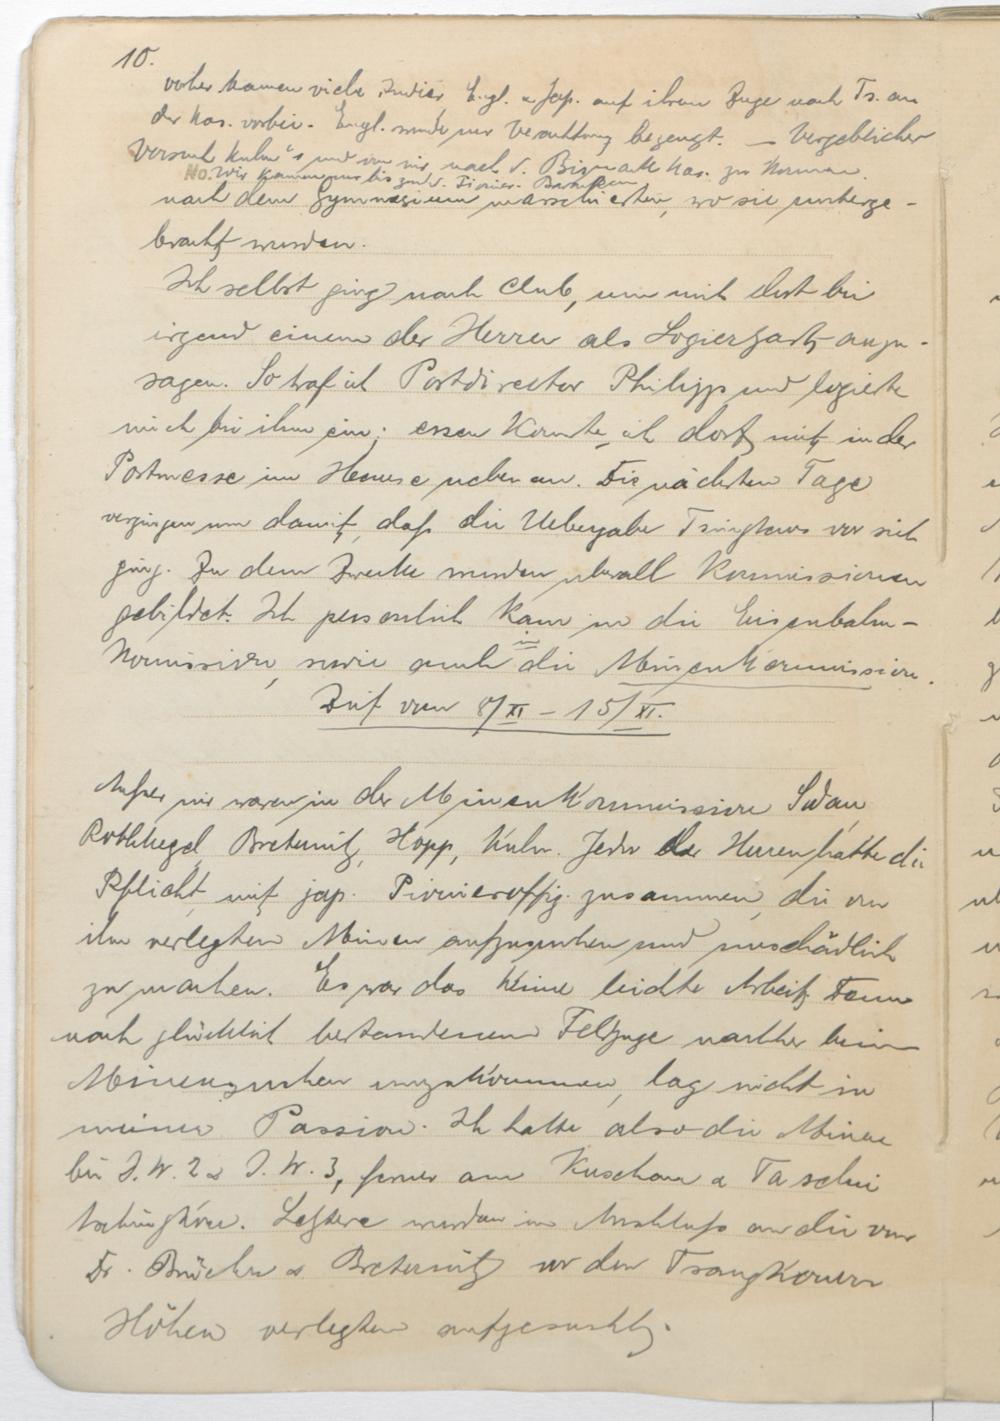 10.
vorher kamen viele Indier Engl. u Jap. auf ihrem Zuge nach Ts. an
der Kas. vorbei. Engl. wurde nur Verachtung bezeugt. — Vergeblicher
Versuch Kuhn's und von mir nach d. Bismarck Kas. zu kommen.
No. Wir kamen nur bis zur d. Pionier-Baracken
nach dem Gymnasium marschierten, wo sie unterge-
bracht wurden.
Ich selbst ging nach Club, um mich dort bei
irgend einem der Herren als Logiergast anzu-
sagen. So traf ich Postdirector Philipps und logierte
mich bei ihm ein; essen konnte ich dort mit in der
Postmesse im Hause nebenan. Die nächsten Tage
vergingen nun damit, daß die Uebergabe Tsingtaus vor sich
ging. Zu dem Zwecke wurden überall Kommissionen
gebildet. Ich persönlich kam in die Eisenbahn-
Kommission, sowie auch in die Minenkommission.
Zeit vom 8/XI – 15/XI.
Außer mir waren in der Minenkommission Sudau,
Rothkegel, Breternitz, Hopp, Kuhn. Jeder der Herren hatte die
Pflicht, mit jap. Pionieroffiz. zusammen, die von
ihm verlegten Minen aufzusuchen und unschädlich
zu machen. Es war das keine leichte Arbeit, Denn
nach glücklich bestandenem Feldzuge nachher beim
Minensuchen umzukommen, lag nicht in
meiner Passion. Ich hatte also die Minen
bei I.W. 2 u I.W. 3, ferner am Kuschan u Ta schui
tschingkou. Letztere wurden im Anschluß an die von
Dr. Brücher u Breternitz vor den Tsangkouer
Höhen verlegten aufgesucht.